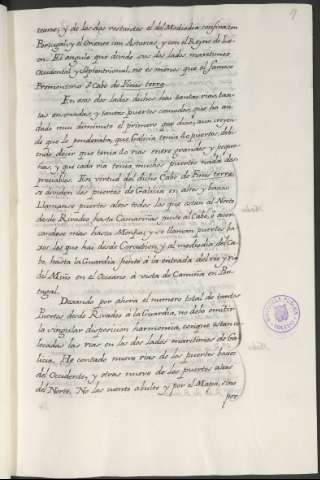 7
teanos; y de las dos restantes el del Mediodia confina con
Portugal, y el Oriente con Asturias, y con el Reyno de Le-
on. El angulo que divide sus dos lados maritimos
Occidental y Septentrional, no es menos que el famoso
Promontorio o Cabo de Finis terre.
En esos dos lados dichos hai tantas rias, tan-
tas ensenadas, y tantos puertos comodos, que ha an-
dado mui diminuto el primero que dixo, aun creyen-
do que lo ponderaba, que Galicia tenia 40 puertos, deb-
iendo decir que tenia 40 rias entre grandes y peque-
ñas, y que cada ria tenia muchos puertos nada des-
preciables. En virtud del dicho Cabo de Finis terre
se dividen los puertos de Galicia en altos y baxos.
Llamanse puertos altos todos los que estan al Norte
desde Rivadeo hasta Camariñas junto al Cabo, o acer-
candose mas hasta Monjia; y se llaman puertos ba-
xos los que hai desde Corcubion, y al mediodia del Ca-
bo, hasta la Guardia frente à la entrada del rio
del Miño en el Oceano à vista de Camiña en Por-
tugal.
Dexando por ahora el numero total de tantos
Puertos desde Rivadeo à la Guardia, no debo omitir
la singular disposicion harmonica, con que estan co-
locadas las rias en los dos lados maritimos de Ga-
licia. He contado nueve rias de los puertos baxos
del Occidente, y otras nueve de los puertos altos
del Norte. No las cuento abulto y por el Mapa, sino
por